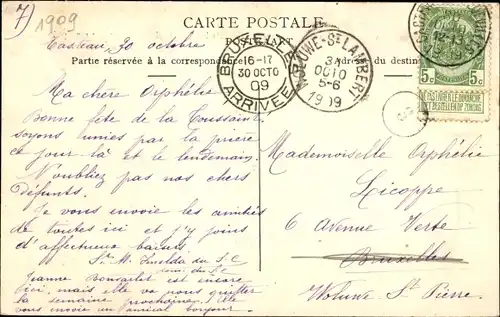 7)
1909
CARTE POSTALE
Partie réservée à la correspondance
Adresse du destin
Casteau 30 octobre
BRUXELLES
16-17
30 OCTO
09
ARRIVEE
WOLUWE-St LAMBERT
31
OCTO
5-6
1909
5c 5c
NE PAS LIVRER LE DIMANCHE
NIET BESTELLEN OP ZONDAG
Ma chère Orphélie
Bonne fête de la Toussaint
soyons unies par la prière
ce jour là et le lendemain.
N'oubliez pas nos chers
Défunts.
Je vous envoie les amitiés
de toutes ici et j'y joins
d'affectueux baisers
Sr M. Imelda du S. C
Jeanne est encore
ici, mais elle va nous quitter
la semaine prochaine. Elle
vous envoie un amical bonjour.
Mademoiselle Orphélie
Licoppe
6 Avenue Verte
Bruxelles
Woluwe St Pierre.